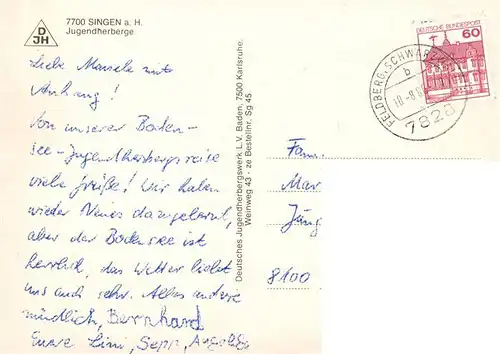 7700 SINGEN a. H.
Jugendherberge
DJH
Liebe Marsele mit
Anhang!
Von unserer Boden-
see-Jugendherbergsreise
viele Grüße! Wir haben
wieder Neues dazugelernt,
aber der Bodensee ist
herrlich, das Wetter liebt
uns auch sehr. Alles andere
mündlich, Bernhard
Eure Lini, Sepp,
Deutsches Jugendherbergswerk L.V. Baden, 7500 Karlsruhe,
Weinweg 43 - ze Bestellnr. Sg 45
DEUTSCHE BUNDESPOST
60
FELDBERG, SCHWARZW
b
7828
Fam.
Mar
Jung
8100